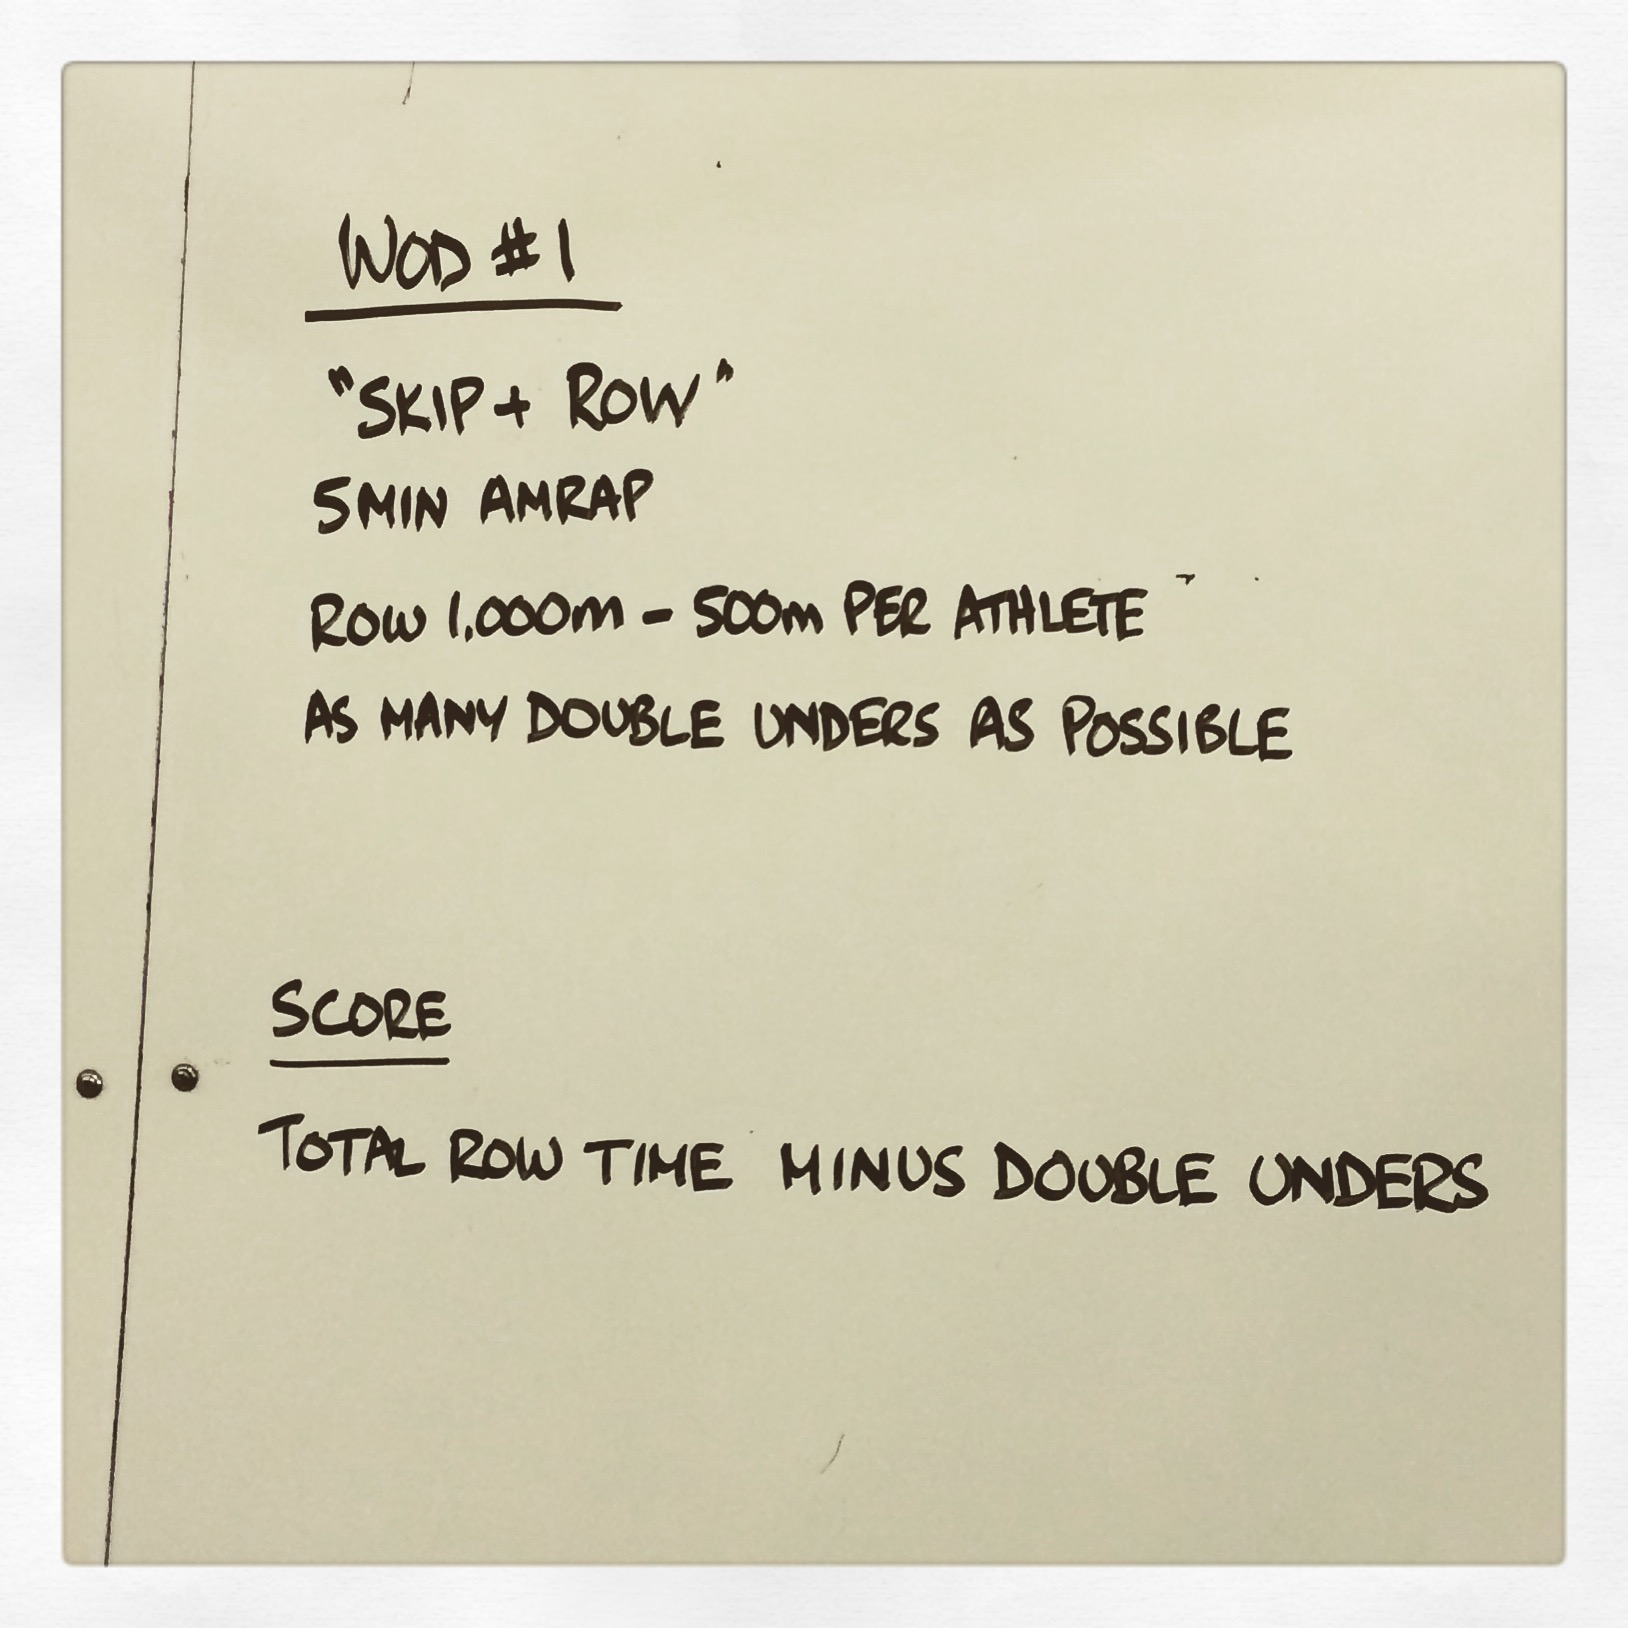 WOD #1
"SKIP + ROW"
5MIN AMRAP
ROW 1.000m - 500m PER ATHLETE
AS MANY DOUBLE UNDERS AS POSSIBLE
SCORE
TOTAL ROW TIME MINUS DOUBLE UNDERS